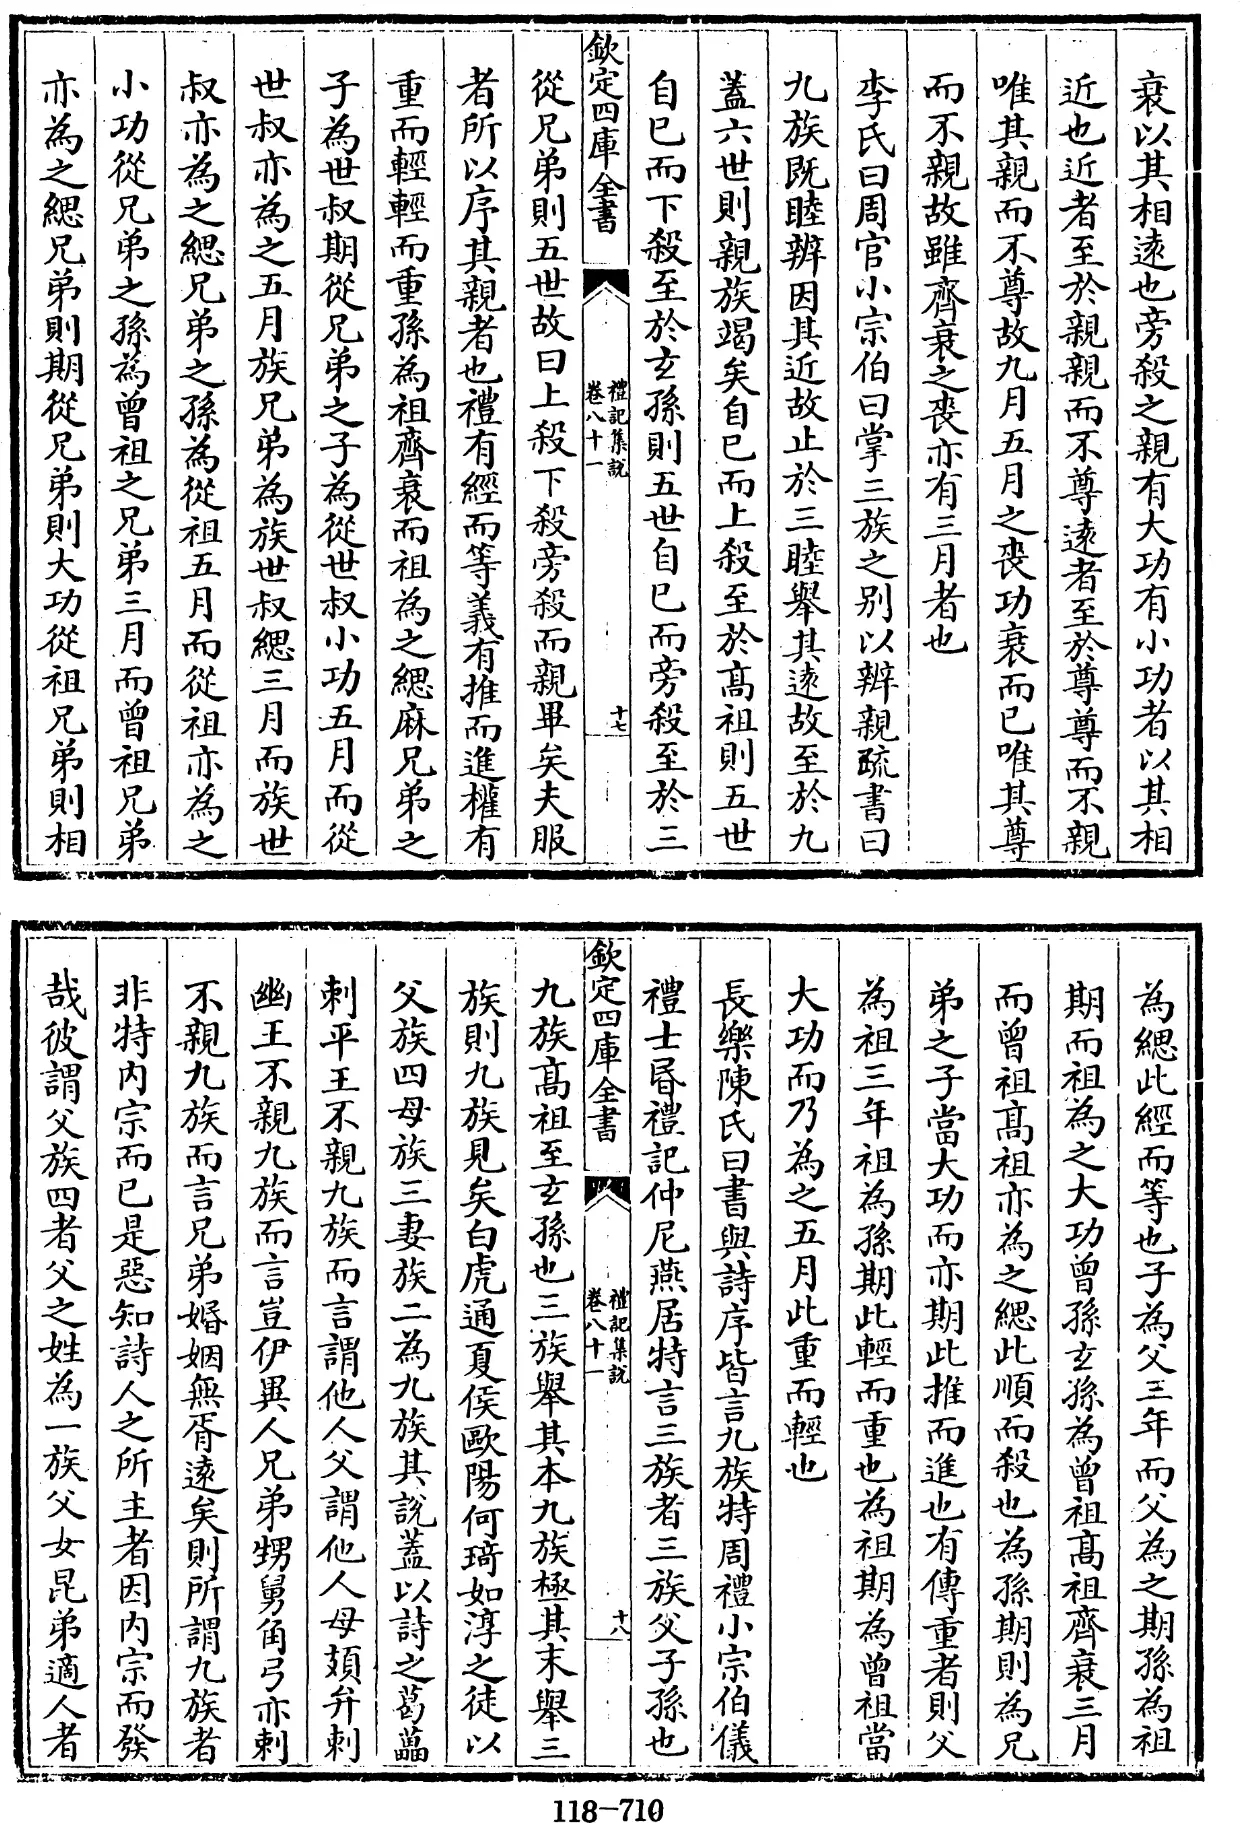 衰以其相遠也旁殺之親有大功有小功者以其相
近也近者至於親親而不尊遠者至於尊尊而不親
唯其親而不尊故九月五月之喪功衰而已唯其尊
而不親故雖齊衰之喪亦有三月者也
李氏曰周官小宗伯曰掌三族之别以辨親疏書曰
九族既睦辨因其近故止於三睦舉其遠故至於九
蓋六世則親族竭矣自己而上殺至於髙祖則五世
自己而下殺至於玄孫則五世自己而旁殺至於三
欽定四庫全書
禮記集說
卷八十一
十七
從兄弟則五世故曰上殺下殺旁殺而親畢矣夫服
者所以序其親者也禮有經而等義有推而進權有
重而輕輕而重孫為祖齊衰而祖為之緦麻兄弟之
子為世叔期從兄弟之子為從世叔小功五月而從
世叔亦為之五月族兄弟為族世叔緦三月而族世
叔亦為之緦兄弟之孫為從祖五月而從祖亦為之
小功從兄弟之孫為曾祖之兄弟三月而曾祖兄弟
亦為之緦兄弟則期從兄弟則大功從祖兄弟則相
為緦此經而等也子為父三年而父為之期孫為祖
期而祖為之大功曾孫玄孫為曾祖髙祖齊衰三月
而曾祖髙祖亦為之緦此順而殺也為孫期則為兄
弟之子當大功而亦期此推而進也有傳重者則父
為祖三年祖為孫期此輕而重也為祖期為曾祖當
大功而乃為之五月此重而輕也
長樂陳氏曰書與詩序皆言九族特周禮小宗伯儀
禮士昏禮記仲尼燕居特言三族者三族父子孫也
欽定四庫全書
禮記集說
卷八十一
十八
九族髙祖至玄孫也三族舉其本九族極其末舉三
族則九族見矣白虎通夏侯歐陽何琦如淳之徒以
父族四母族三妻族二為九族其說蓋以詩之葛藟
刺平王不親九族而言謂他人父謂他人母頍弁刺
幽王不親九族而言豈伊異人兄弟甥舅角弓亦刺
不親九族而言兄弟婚姻無胥遠矣則所謂九族者
非特内宗而已是惡知詩人之所主者因内宗而發
哉彼謂父族四者父之姓為一族父女昆弟適人者
118-710